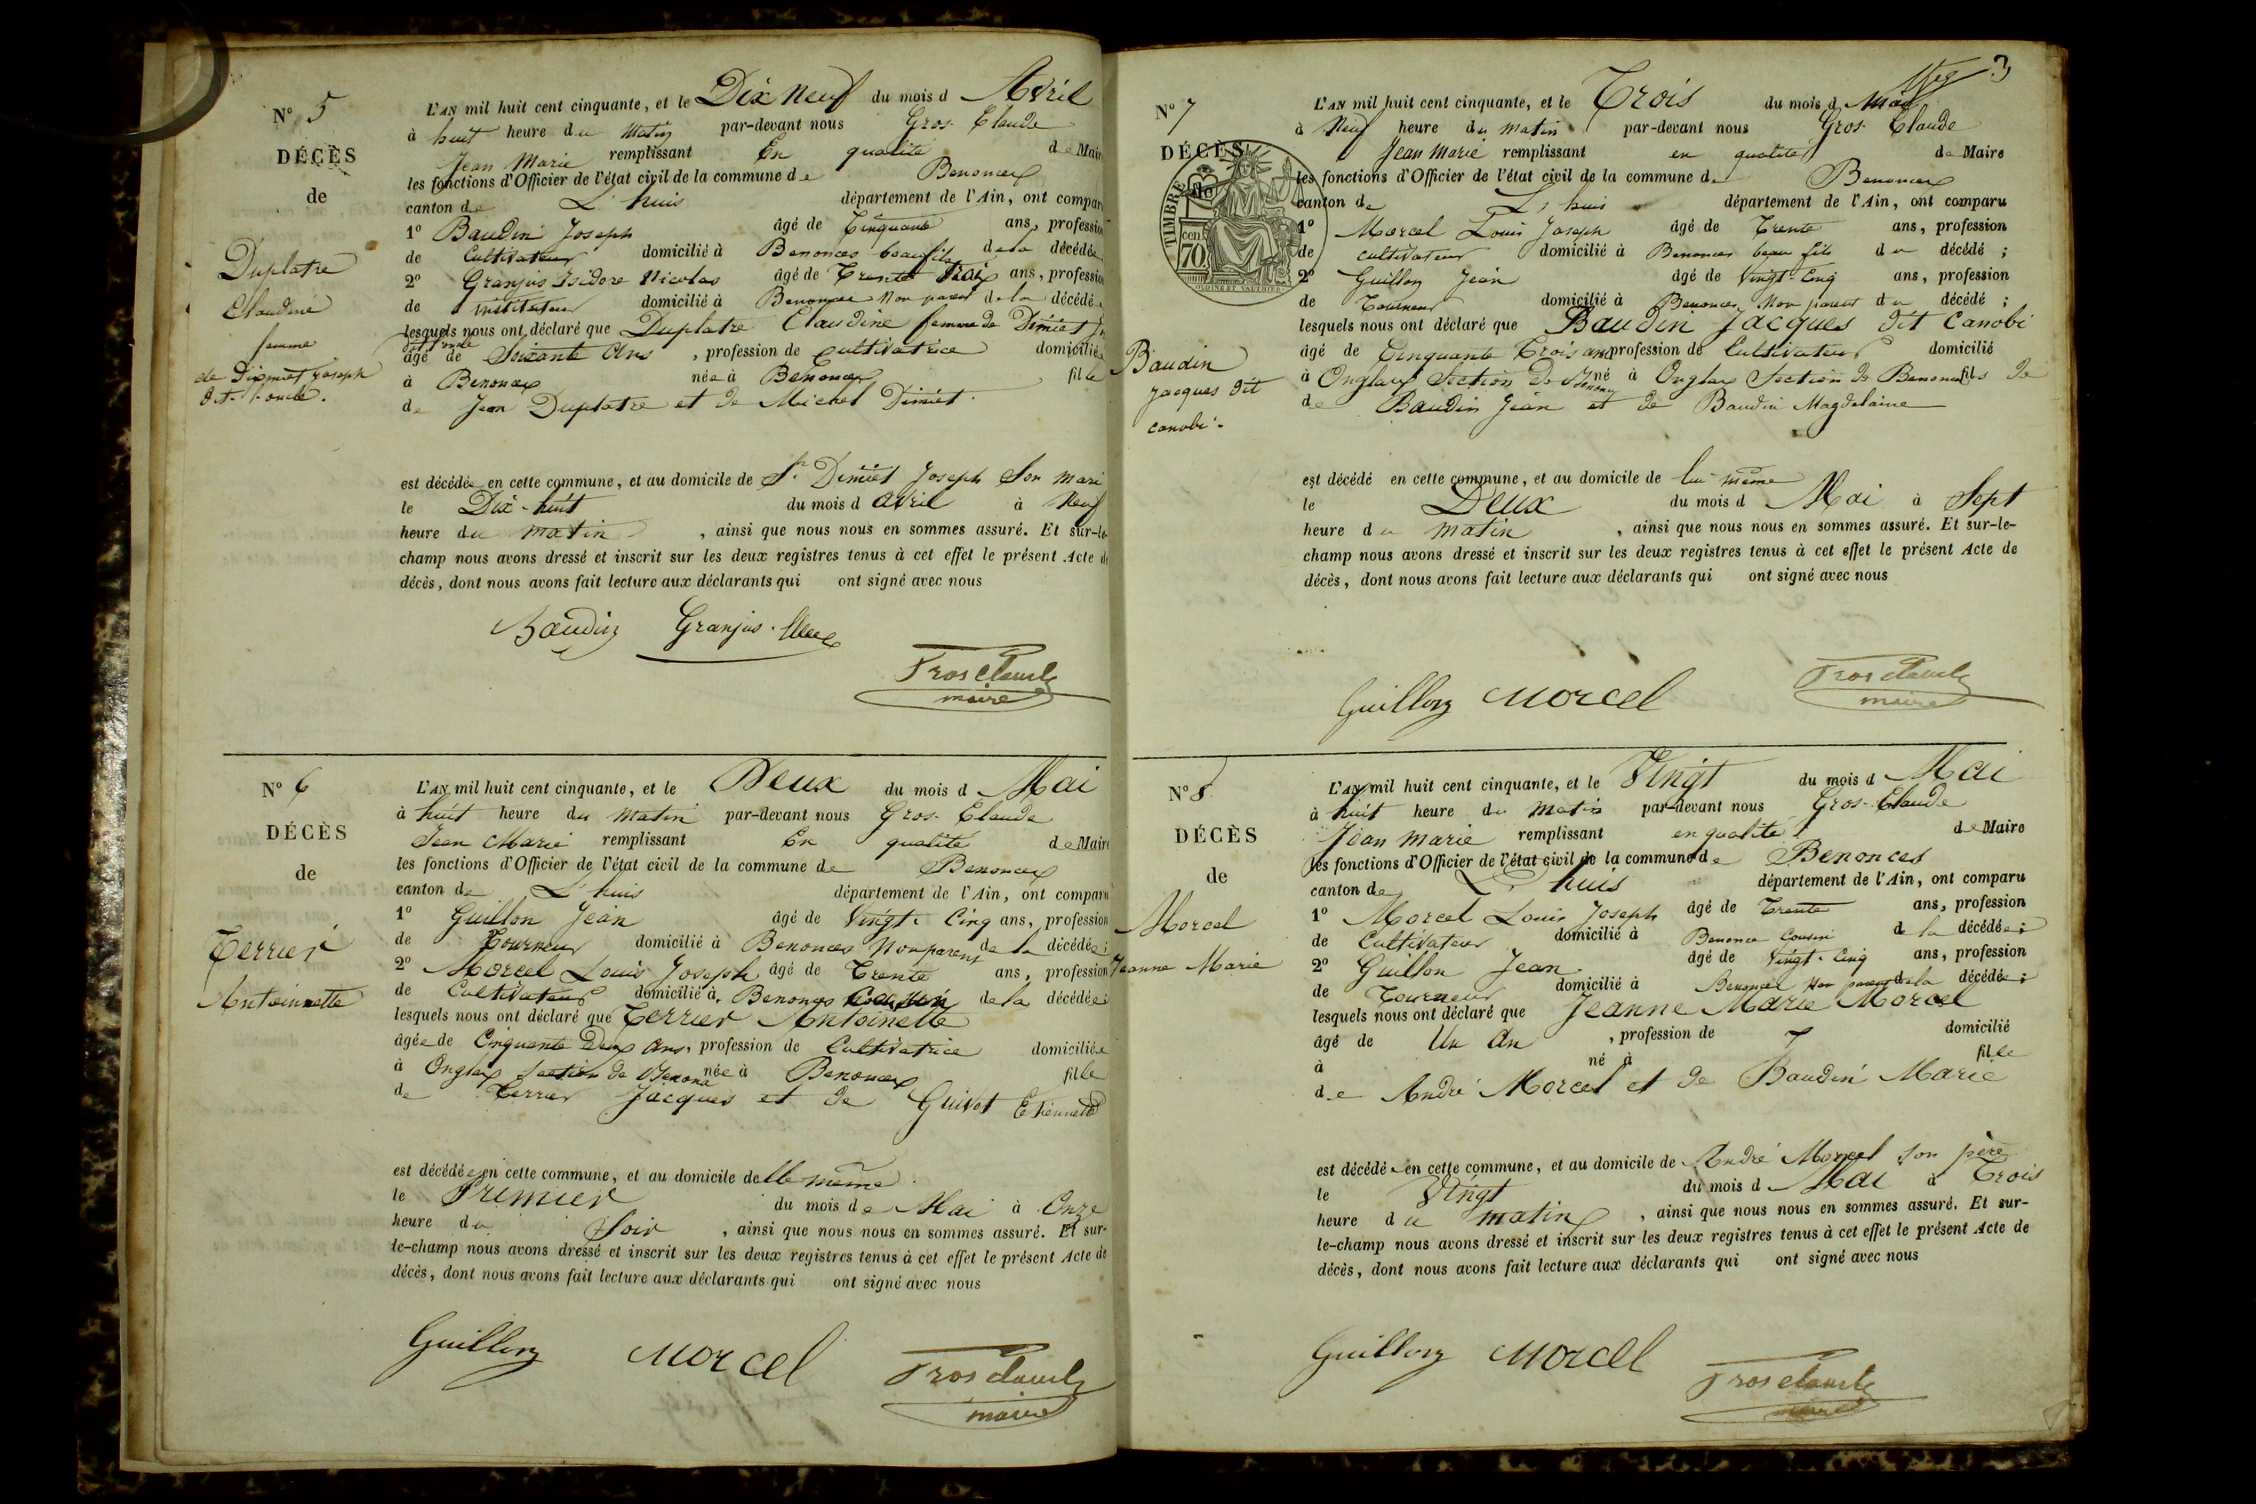 N° 5
DÉCÈS
de
Duplatre
Claudine
femme
de Dimiet Joseph
dit l'oncle.
L'AN mil huit cent cinquante, et le Dix neuf du mois d Avril
à huit heure du matin par-devant nous Gros-Claude
Jean Marie remplissant En qualité de Maire
les fonctions d'Officier de l'état civil de la commune de Benonces
canton de L'huis département de l'Ain, ont comparu
1° Baudin Joseph âgé de Cinquante ans, profession
de Cultivateur domicilié à Benonces beau fils de la décédée
2° Granjus Isidore Nicolas âgé de Trente Trois ans, profession
de instituteur domicilié à Benonces Non parent de la décédée
lesquels nous ont déclaré que Duplatre Claudine femme de Dimiet
dit l'oncle
âgé de Soixante ans, profession de cultivatrice domiciliée
à Benonces née à Benonces fille
de Jean Duplatre et de Michel Dimiet.
est décédée en cette commune, et au domicile de Sr Dimiet Joseph Son mari
le Dix-huit du mois d avril à Neuf
heure du matin, ainsi que nous nous en sommes assuré. Et sur-le-
champ nous avons dressé et inscrit sur les deux registres tenus à cet effet le présent Acte de
décès, dont nous avons fait lecture aux déclarants qui ont signé avec nous
Baudin Granjus
Gros Claude
maire
N° 6
DÉCÈS
de
Terrier
Antoinette
L'AN mil huit cent cinquante, et le Deux du mois d Mai
à huit heure du matin par-devant nous Gros-Claude
Jean Marie remplissant En qualité de Maire
les fonctions d'Officier de l'état civil de la commune de Benonces
canton de L'huis département de l'Ain, ont comparu
1° Guillon Jean âgé de Vingt-Cinq ans, profession
de Tourneur domicilié à Benonces Non parent de la décédée;
2° Morcel Louis Joseph âgé de Trente ans, profession
de Cultivateur domicilié à Benonces Cousin de la décédée;
lesquels nous ont déclaré que Terrier Antoinette
âgée de Cinquante Deux ans, profession de Cultivatrice domiciliée
à Onglax Section de Benonce née à Benonces fille
de Terrier Jacques et de Guivet Etiennette
est décédée en cette commune, et au domicile delle même
le Premier du mois de Mai à Onze
heure du Soir, ainsi que nous nous en sommes assuré. Et sur-
le-champ nous avons dressé et inscrit sur les deux registres tenus à cet effet le présent Acte de
décès, dont nous avons fait lecture aux déclarants qui ont signé avec nous
Guillon Morcel Gros Claude
maire
3
N° 7
DÉCÈS
TIMBRE
cent
70
Baudin
Jacques dit
Canobi.
L'AN mil huit cent cinquante, et le Trois du mois d Mai
à Neuf heure du matin par-devant nous Gros-Claude
Jean Marie remplissant en qualité de Maire
les fonctions d'Officier de l'état civil de la commune de Benonces
canton de L'huis département de l'Ain, ont comparu
1° Morcel Louis Joseph âgé de Trente ans, profession
de cultivateur domicilié à Benonces beau fils du décédé;
2° Guillon Jean âgé de Vingt-Cinq ans, profession
de Tourneur domicilié à Benonces Non parent du décédé;
lesquels nous ont déclaré que Baudin Jacques dit Canobi
âgé de Cinquante Trois ans profession de Cultivateur domicilié
à Onglax Section de Benonces né à Onglax Section de Benonces fils de
de Baudin Jean et de Baudin Magdelaine
est décédé en cette commune, et au domicile de lui-même
le Deux du mois d Mai à Sept
heure du matin, ainsi que nous nous en sommes assuré. Et sur-le-
champ nous avons dressé et inscrit sur les deux registres tenus à cet effet le présent Acte de
décès, dont nous avons fait lecture aux déclarants qui ont signé avec nous
Guillon Morcel Gros Claude
maire
N° 8
DÉCÈS
de
Morcel
Jeanne Marie
L'AN mil huit cent cinquante, et le Vingt du mois d Mai
à huit heure du matin par-devant nous Gros-Claude
Jean marie remplissant en qualité de Maire
les fonctions d'Officier de l'état civil de la commune de Benonces
canton de L'huis département de l'Ain, ont comparu
1° Morcel Louis Joseph âgé de Trente ans, profession
de Cultivateur domicilié à Benonce Cousin de la décédée;
2° Guillon Jean âgé de Vingt-Cinq ans, profession
de Tourneur domicilié à Benonces Non parent de la décédée;
lesquels nous ont déclaré que Jeanne Marie Morcel
âgé de Un An, profession de domicilié
à né à fille
de André Morcel et de Baudin Marie
est décédé en cette commune, et au domicile de André Morcel son père
le Vingt du mois d Mai à Trois
heure du matin, ainsi que nous nous en sommes assuré. Et sur-
le-champ nous avons dressé et inscrit sur les deux registres tenus à cet effet le présent Acte de
décès, dont nous avons fait lecture aux déclarants qui ont signé avec nous
Guillon Morcel Gros Claude
maire